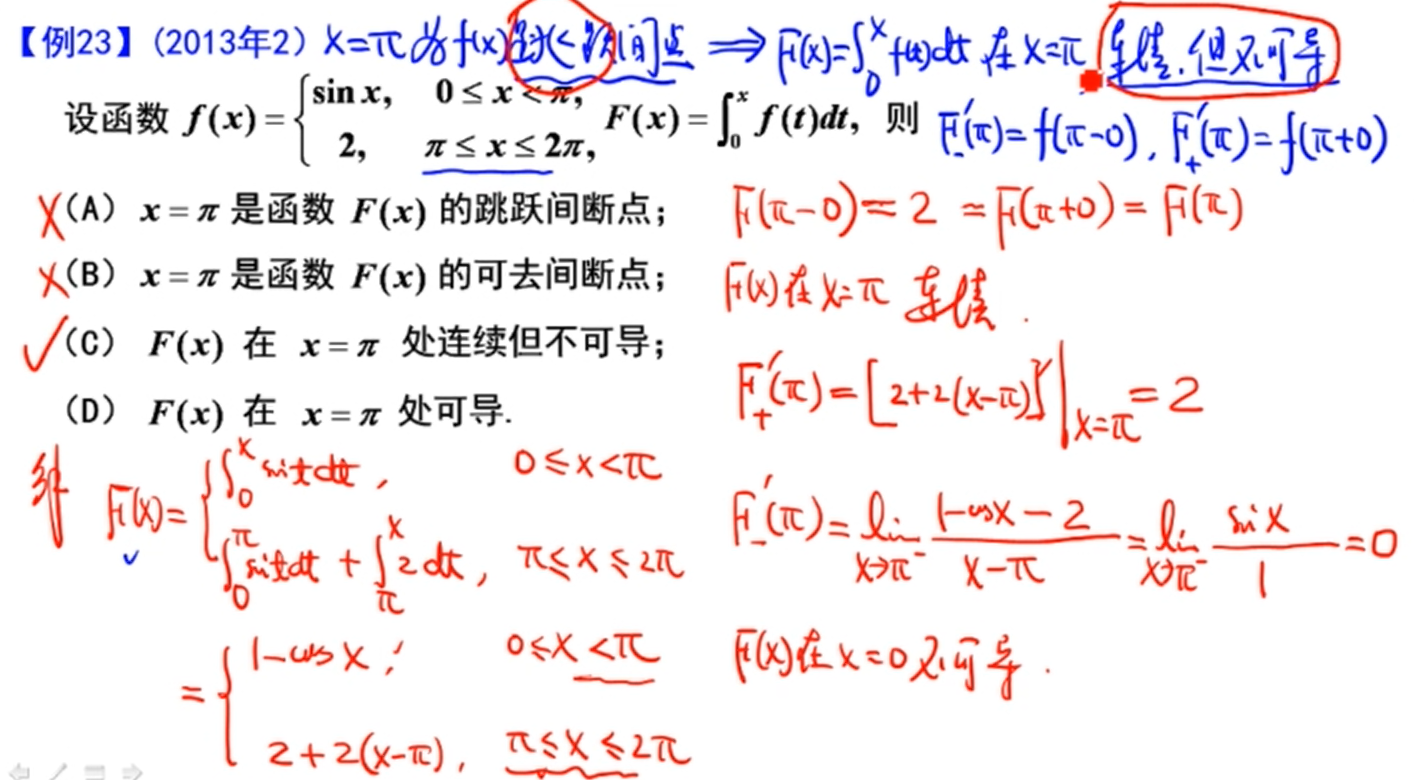 【例23】(2013年2) x=π为f(x)跳跃间断点 ⟹ F(x)=∫₀ˣf(t)dt 在 x=π 连续,但不可导
设函数 f(x) = { sin x, 0 ≤ x < π, 2, π ≤ x ≤ 2π, F(x) = ∫₀ˣ f(t)dt, 则
F₋′(π)=f(π-0), F₊′(π)=f(π+0)
×(A) x = π 是函数 F(x) 的跳跃间断点;
×(B) x = π 是函数 F(x) 的可去间断点;
✓(C) F(x) 在 x = π 处连续但不可导;
(D) F(x) 在 x = π 处可导.
解 F(x)= { ∫₀ˣ sintdt, 0≤x<π
∫₀^π sintdt + ∫_π^x 2dt, π≤x≤2π
= { 1-cosx, 0≤x<π
2+2(x-π), π≤x≤2π
F(π-0)=2=F(π+0)=F(π)
F(x)在x=π 连续.
F₊′(π)=[2+2(x-π)]′|_{x=π}=2
F₋′(π)=lim_{x→π⁻} (1-cosx-2)/(x-π) = lim_{x→π⁻} sinx/1 =0
F(x)在x=0不可导.